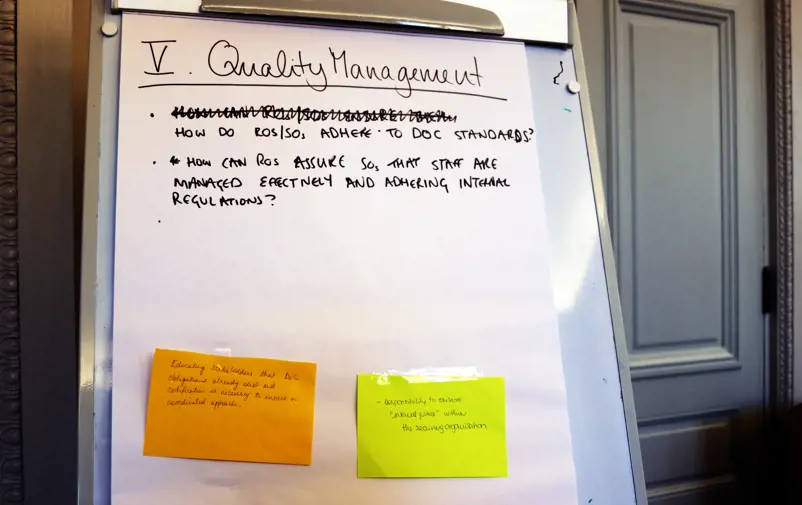 V. Quality Management
• HOW CAN ROS/SOs ENSURE
HOW DO ROS/SOs ADHERE TO DOC STANDARDS?
• HOW CAN ROS ASSURE SOs THAT STAFF ARE
MANAGED EFECTIVELY AND ADHERING INTERNAL
REGULATIONS?
•
Educating stakeholders that DoC
obligations already exist and
codification is necessary to ensure a
coordinated approach.
- Responsibility to ensure
within
the seconing organization